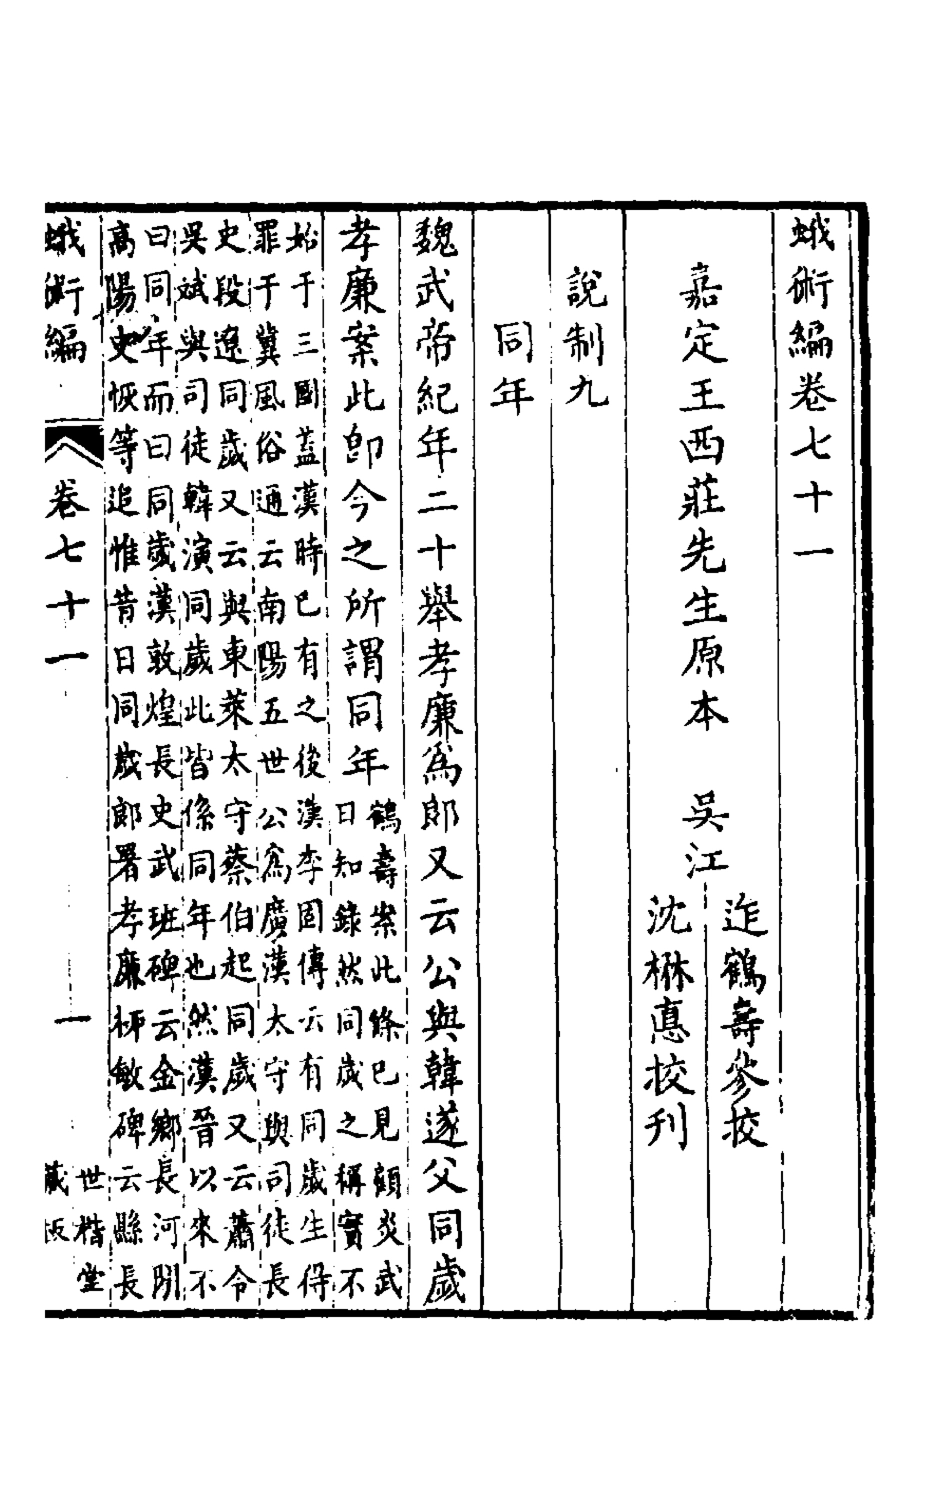 蛾術編卷七十一
嘉定王西莊先生原本　吳江
迮鶴壽參校
沈楙惪校刊
說制九
同年
魏武帝紀年二十舉孝廉爲郎又云公與韓遂父同歲
孝廉案此卽今之所謂同年
鶴壽案此條已見顧炎武
日知錄然同歲之稱實不
始于三國蓋漢時已有之後漢李固傳云有同歲生得
罪于冀風俗通云南陽五世公爲廣漢太守與司徒長
史段遼同歲又云與東萊太守蔡伯起同歲又云蕭令
吳斌與司徒韓演同歲此皆係同年也然漢晉以來不
曰同年而曰同歲漢敦煌長史武班碑云金鄉長河閒
高陽史恢等追惟昔日同歲郎署孝廉柳敏碑云縣長
蛾術編
卷七十一
一
世楷堂
藏板